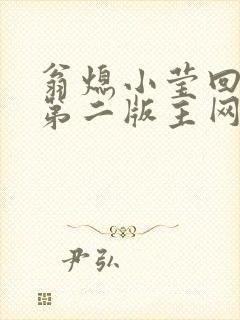 翁熄小莹回
第二版主网
尹弘